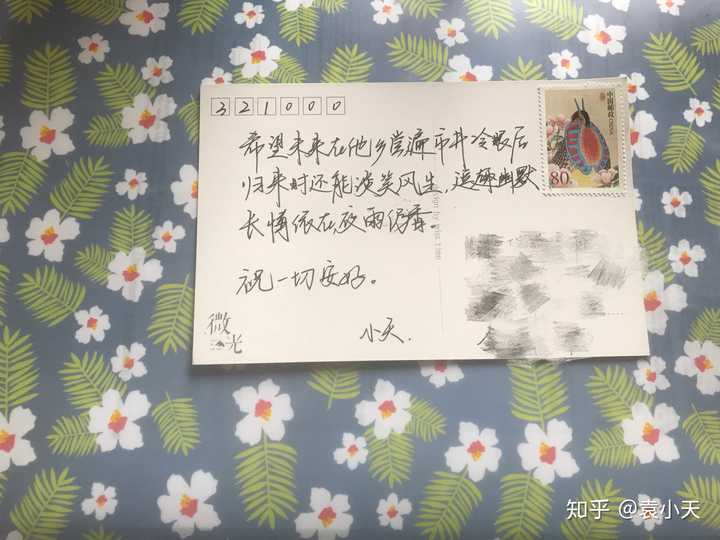 321000
希望未来在他乡尝遍市井冷眼后
归来时还能谈笑风生，逗趣幽默
长情依在夜雨香。
祝一切安好。
小天.
微光
中国邮政
80
知乎 @袁小天